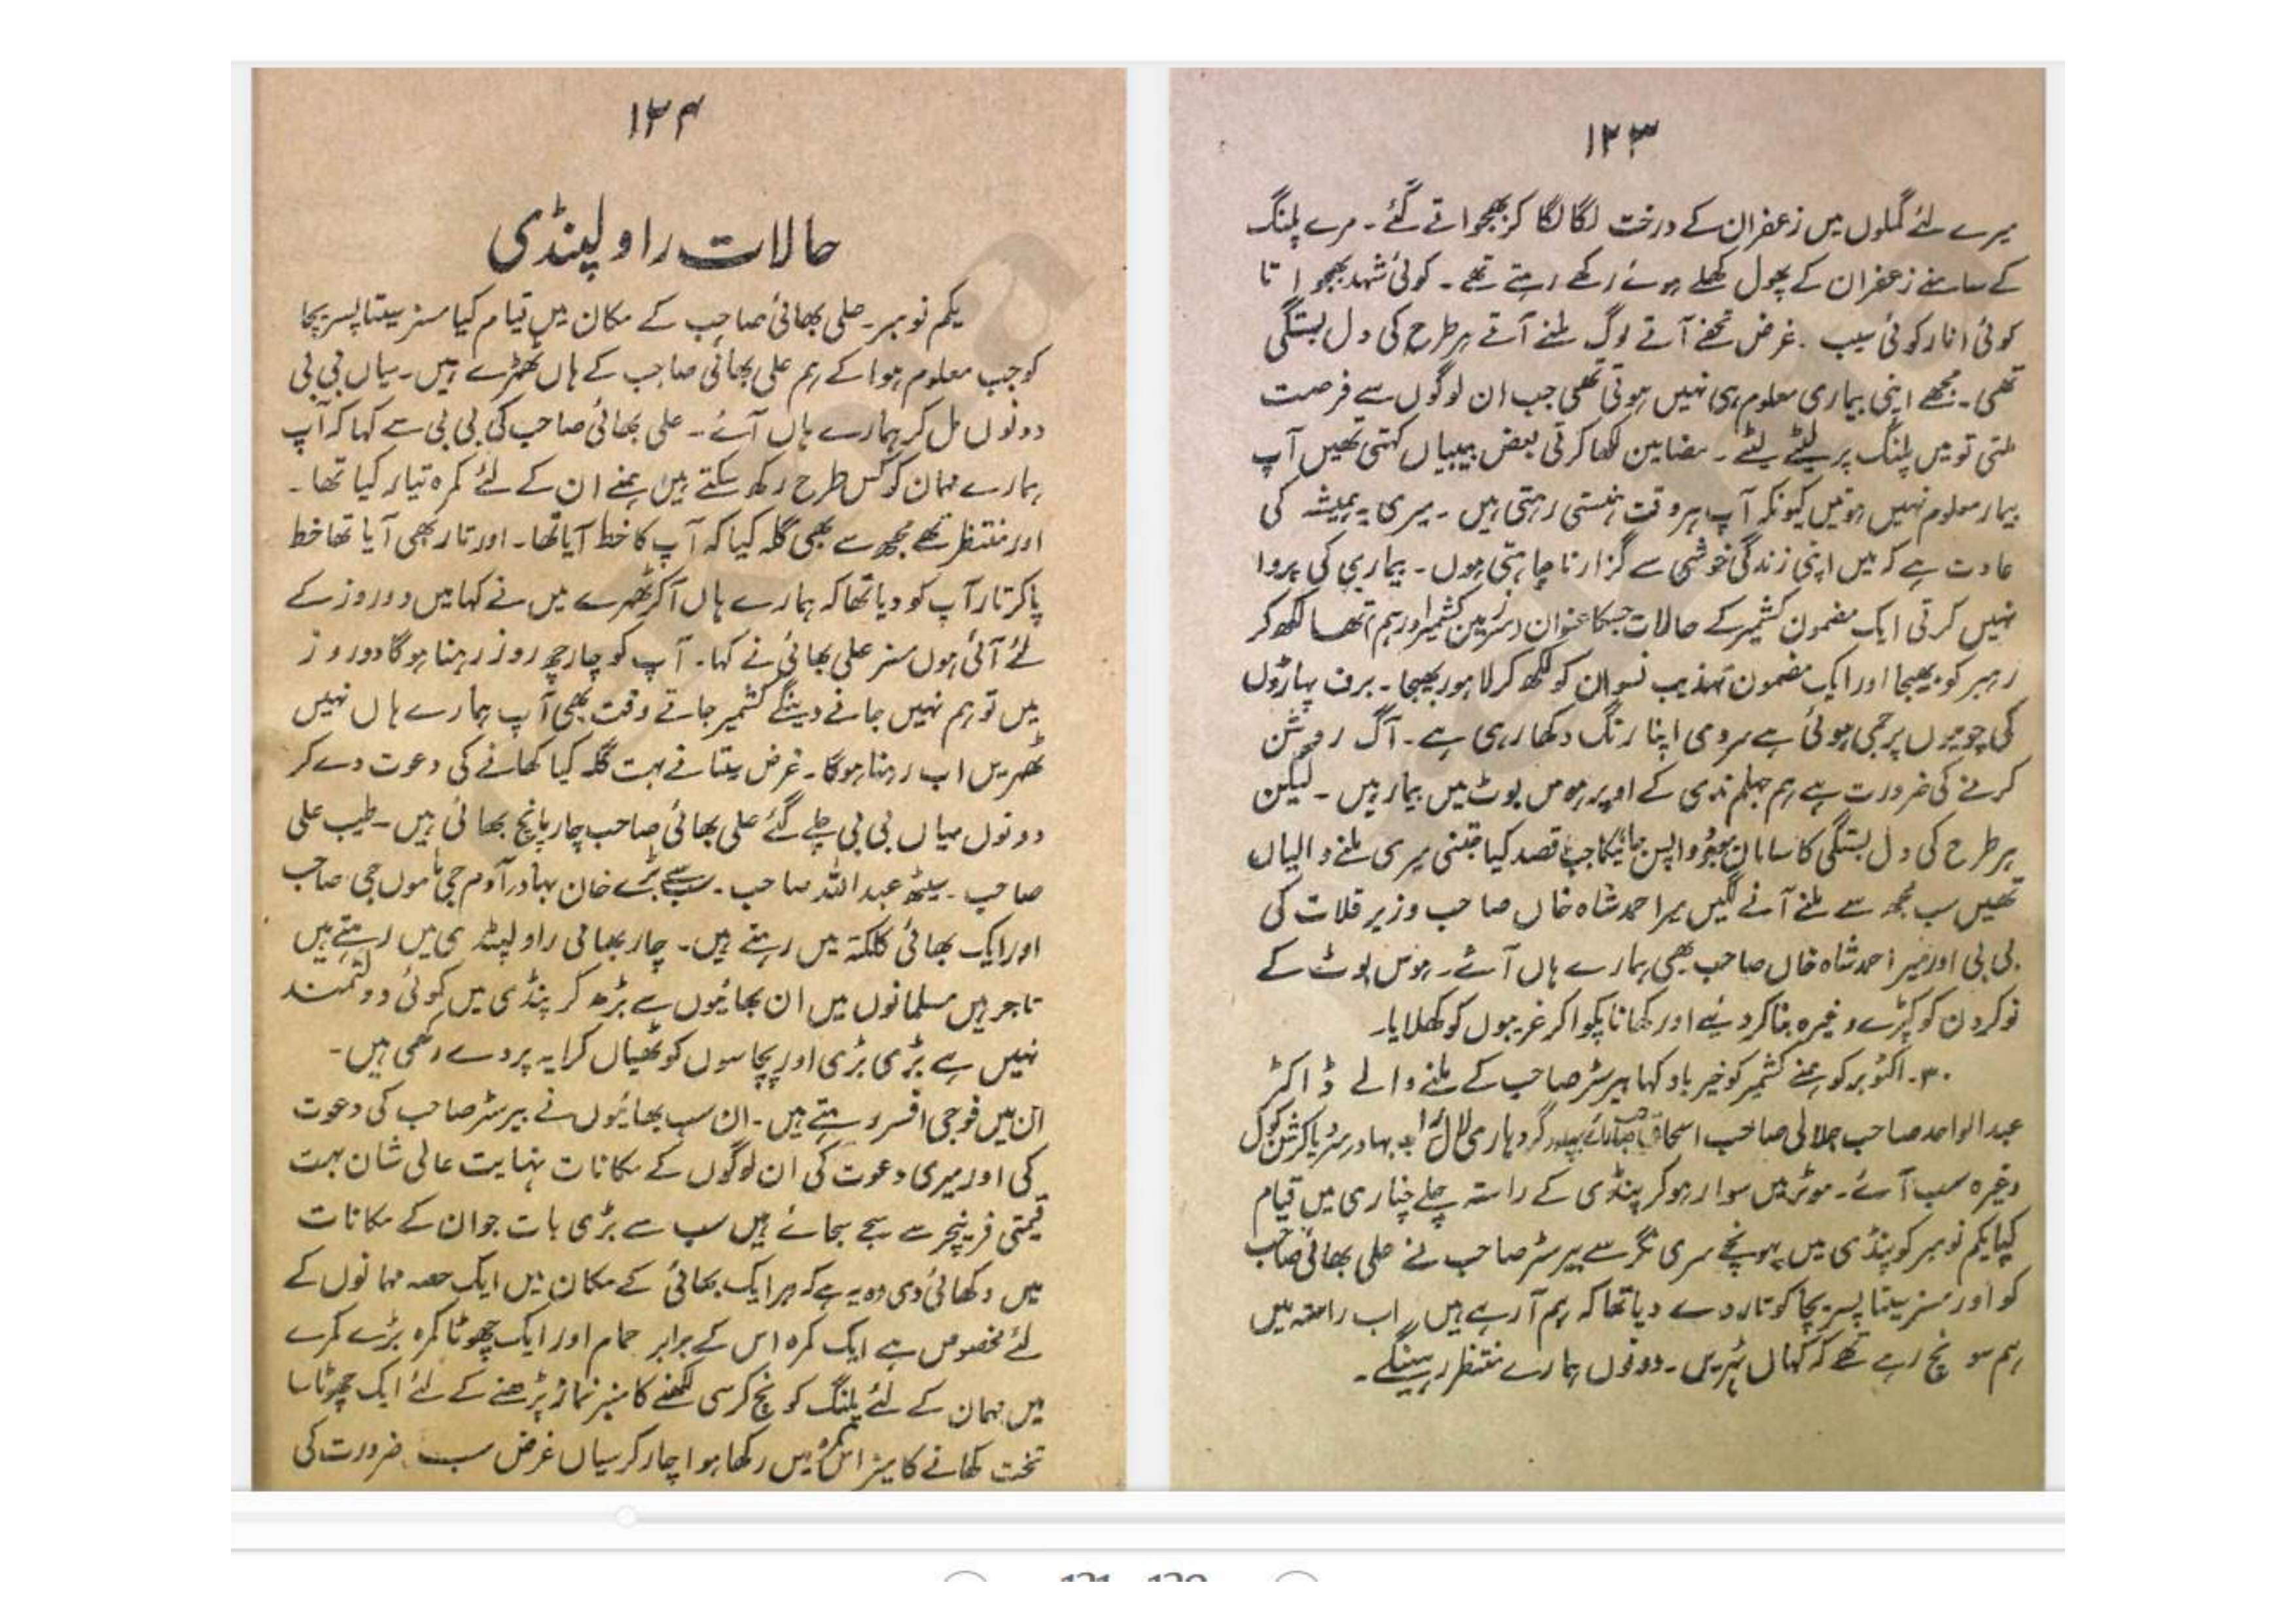 ۱۲۳
میرے لئے گملوں میں زعفران کے درخت لگا لگا کر بھجواتے گئے۔ مرے پلنگ
کے سامنے زعفران کے پھول کھلے ہوئے رکھے رہتے تھے۔ کوئی شہد بھجواتا
کوئی انار کوئی سیب۔ غرض تحفے آتے لوگ ملنے آتے ہر طرح کی دل بستگی
تھی۔ مجھے اپنی بیماری معلوم ہی نہیں ہوتی تھی جب ان لوگوں سے فرصت
ملتی تو میں پلنگ پر لیٹے لیٹے۔ مضامین لکھا کرتی بعض بیبیاں کہتی تھیں آپ
بیمار معلوم نہیں ہوتیں کیونکہ آپ ہر وقت ہنستی رہتی ہیں۔ میری یہ ہمیشہ کی
عادت ہے کہ میں اپنی زندگی خوشی سے گزارنا چاہتی ہوں۔ بیماری کی پروا
نہیں کرتی ایک مضمون کشمیر کے حالات جسکا عنوان (سرزمین کشمیر اور ہم) تھا لکھ کر
رہبر کو بھیجا اور ایک مضمون تہذیب نسوان کو لکھ کر لاہور بھیجا۔ برف پہاڑوں
کی چوٹیوں پر جمی ہوئی ہے سردی اپنا رنگ دکھا رہی ہے۔ آگ روشن
کرنے کی ضرورت ہے ہم جہلم ندی کے اوپر ہوس بوٹ میں بیمار ہیں۔ لیکن
ہر طرح کی دل بستگی کا سامان موجود واپس جانیکا جب قصد کیا جتنی میری ملنے والیاں
تھیں سب مجھ سے ملنے آنے لگیں میر احمد شاہ خاں صاحب وزیر قلات کی
بی بی اور میر احمد شاہ خاں صاحب بھی ہمارے ہاں آئے۔ ہوس بوٹ کے
نوکروں کو کپڑے وغیرہ بنا کر دیئے اور کھانا پکوا کر غریبوں کو کھلایا۔
۳۰۔ اکتوبر کو ہمنے کشمیر کو خیر باد کہا بیرسٹر صاحب کے ملنے والے ڈاکٹر
عبدالواحد صاحب جلالی صاحب اسحاق صاحب گردہاری لال بہادر کول
وغیرہ سب آئے۔ موٹر میں سوار ہو کر پنڈی کے راستہ چلے چناری میں قیام
کیا یکم نومبر کو پنڈی میں پہونچے سری نگر سے بیرسٹر صاحب نے علی بھائی صاحب
کو اور مسز سیتا پسریچا کو تار دے دیا تھا کہ ہم آ رہے ہیں اب راستہ میں
ہم سونچ رہے تھے کہ کہاں ٹہریں۔ دونوں ہمارے منتظر رہینگے۔
۱۲۴
حالات راولپنڈی
یکم نومبر۔ علی بھائی صاحب کے مکان میں قیام کیا مسز سیتا پسریچا
کو جب معلوم ہوا کے ہم علی بھائی صاحب کے ہاں ٹھہرے ہیں۔ میاں بی بی
دونوں مل کر ہمارے ہاں آئے۔ علی بھائی صاحب کی بی بی سے کہا کہ آپ
ہمارے مہمان کو کس طرح رکھ سکتے ہیں ہمنے ان کے لئے کمرہ تیار کیا تھا۔
اور منتظر تھے مجھ سے بھی گلہ کیا کہ آپ کا خط آیا تھا۔ اور تار بھی آیا تھا خط
پا کر تار آپ کو دیا تھا کہ ہمارے ہاں آ کر ٹھہرے میں نے کہا میں دو روز کے
لئے آئی ہوں مسز علی بھائی نے کہا۔ آپ کو چار چھ روز رہنا ہوگا دو روز
میں تو ہم نہیں جانے دینگے کشمیر جاتے وقت بھی آپ ہمارے ہاں نہیں
ٹھہریں اب رہنا ہوگا۔ غرض سیتا نے بہت گلہ کیا کھانے کی دعوت دے کر
دونوں میاں بی بی چلے گئے علی بھائی صاحب چار پانچ بھائی ہیں۔ طیب علی
صاحب۔ سیٹھ عبداللہ صاحب۔ سب سے بڑے خان بہادر آدم جی ماموں جی صاحب
اور ایک بھائی کلکتہ میں رہتے ہیں۔ چار بھائی راولپنڈی میں رہتے ہیں
تاجر ہیں مسلمانوں میں ان بھائیوں سے بڑھ کر پنڈی میں کوئی دولتمند
نہیں ہے بڑی بڑی اور پچاسوں کوٹھیاں کرایہ پر دے رکھی ہیں۔
ان میں فوجی افسر رہتے ہیں۔ ان سب بھائیوں نے بیرسٹر صاحب کی دعوت
کی اور میری دعوت کی ان لوگوں کے مکانات نہایت عالی شان بہت
قیمتی فرنیچر سے سجے سجائے ہیں سب سے بڑی بات جو ان کے مکانات
میں دکھائی دی وہ یہ ہے کہ ہر ایک بھائی کے مکان میں ایک حصہ مہمانوں کے
لئے مخصوص ہے ایک کمرہ اس کے برابر حمام اور ایک چھوٹا کمرہ بڑے کمرے
میں مہمان کے لئے پلنگ کونچ کرسی لکھنے کا میز نماز پڑھنے کے لئے ایک چھوٹا سا
تخت کھانے کا میز اس کمرہ میں رکھا ہوا چار کرسیاں غرض سب ضرورت کی